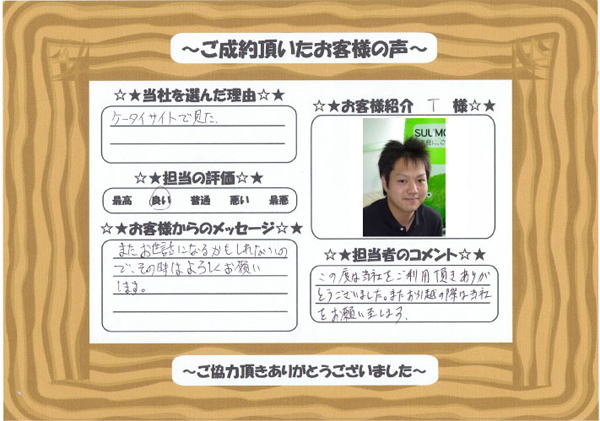 ～ご成約頂いたお客様の声～
☆★当社を選んだ理由☆★
ケータイサイトで見た。
☆★担当の評価☆★
最高 良い 普通 悪い 最悪
☆★お客様からのメッセージ☆★
またお世話になるかもしれないの
で、その時はよろしくお願い
します。
☆★お客様紹介 T 様☆★
SUUMO
☆★担当者のコメント☆★
この度は当社をご利用頂きありが
とうございました。またお引越の際は当社
をお願い致します。
～ご協力頂きありがとうございました～